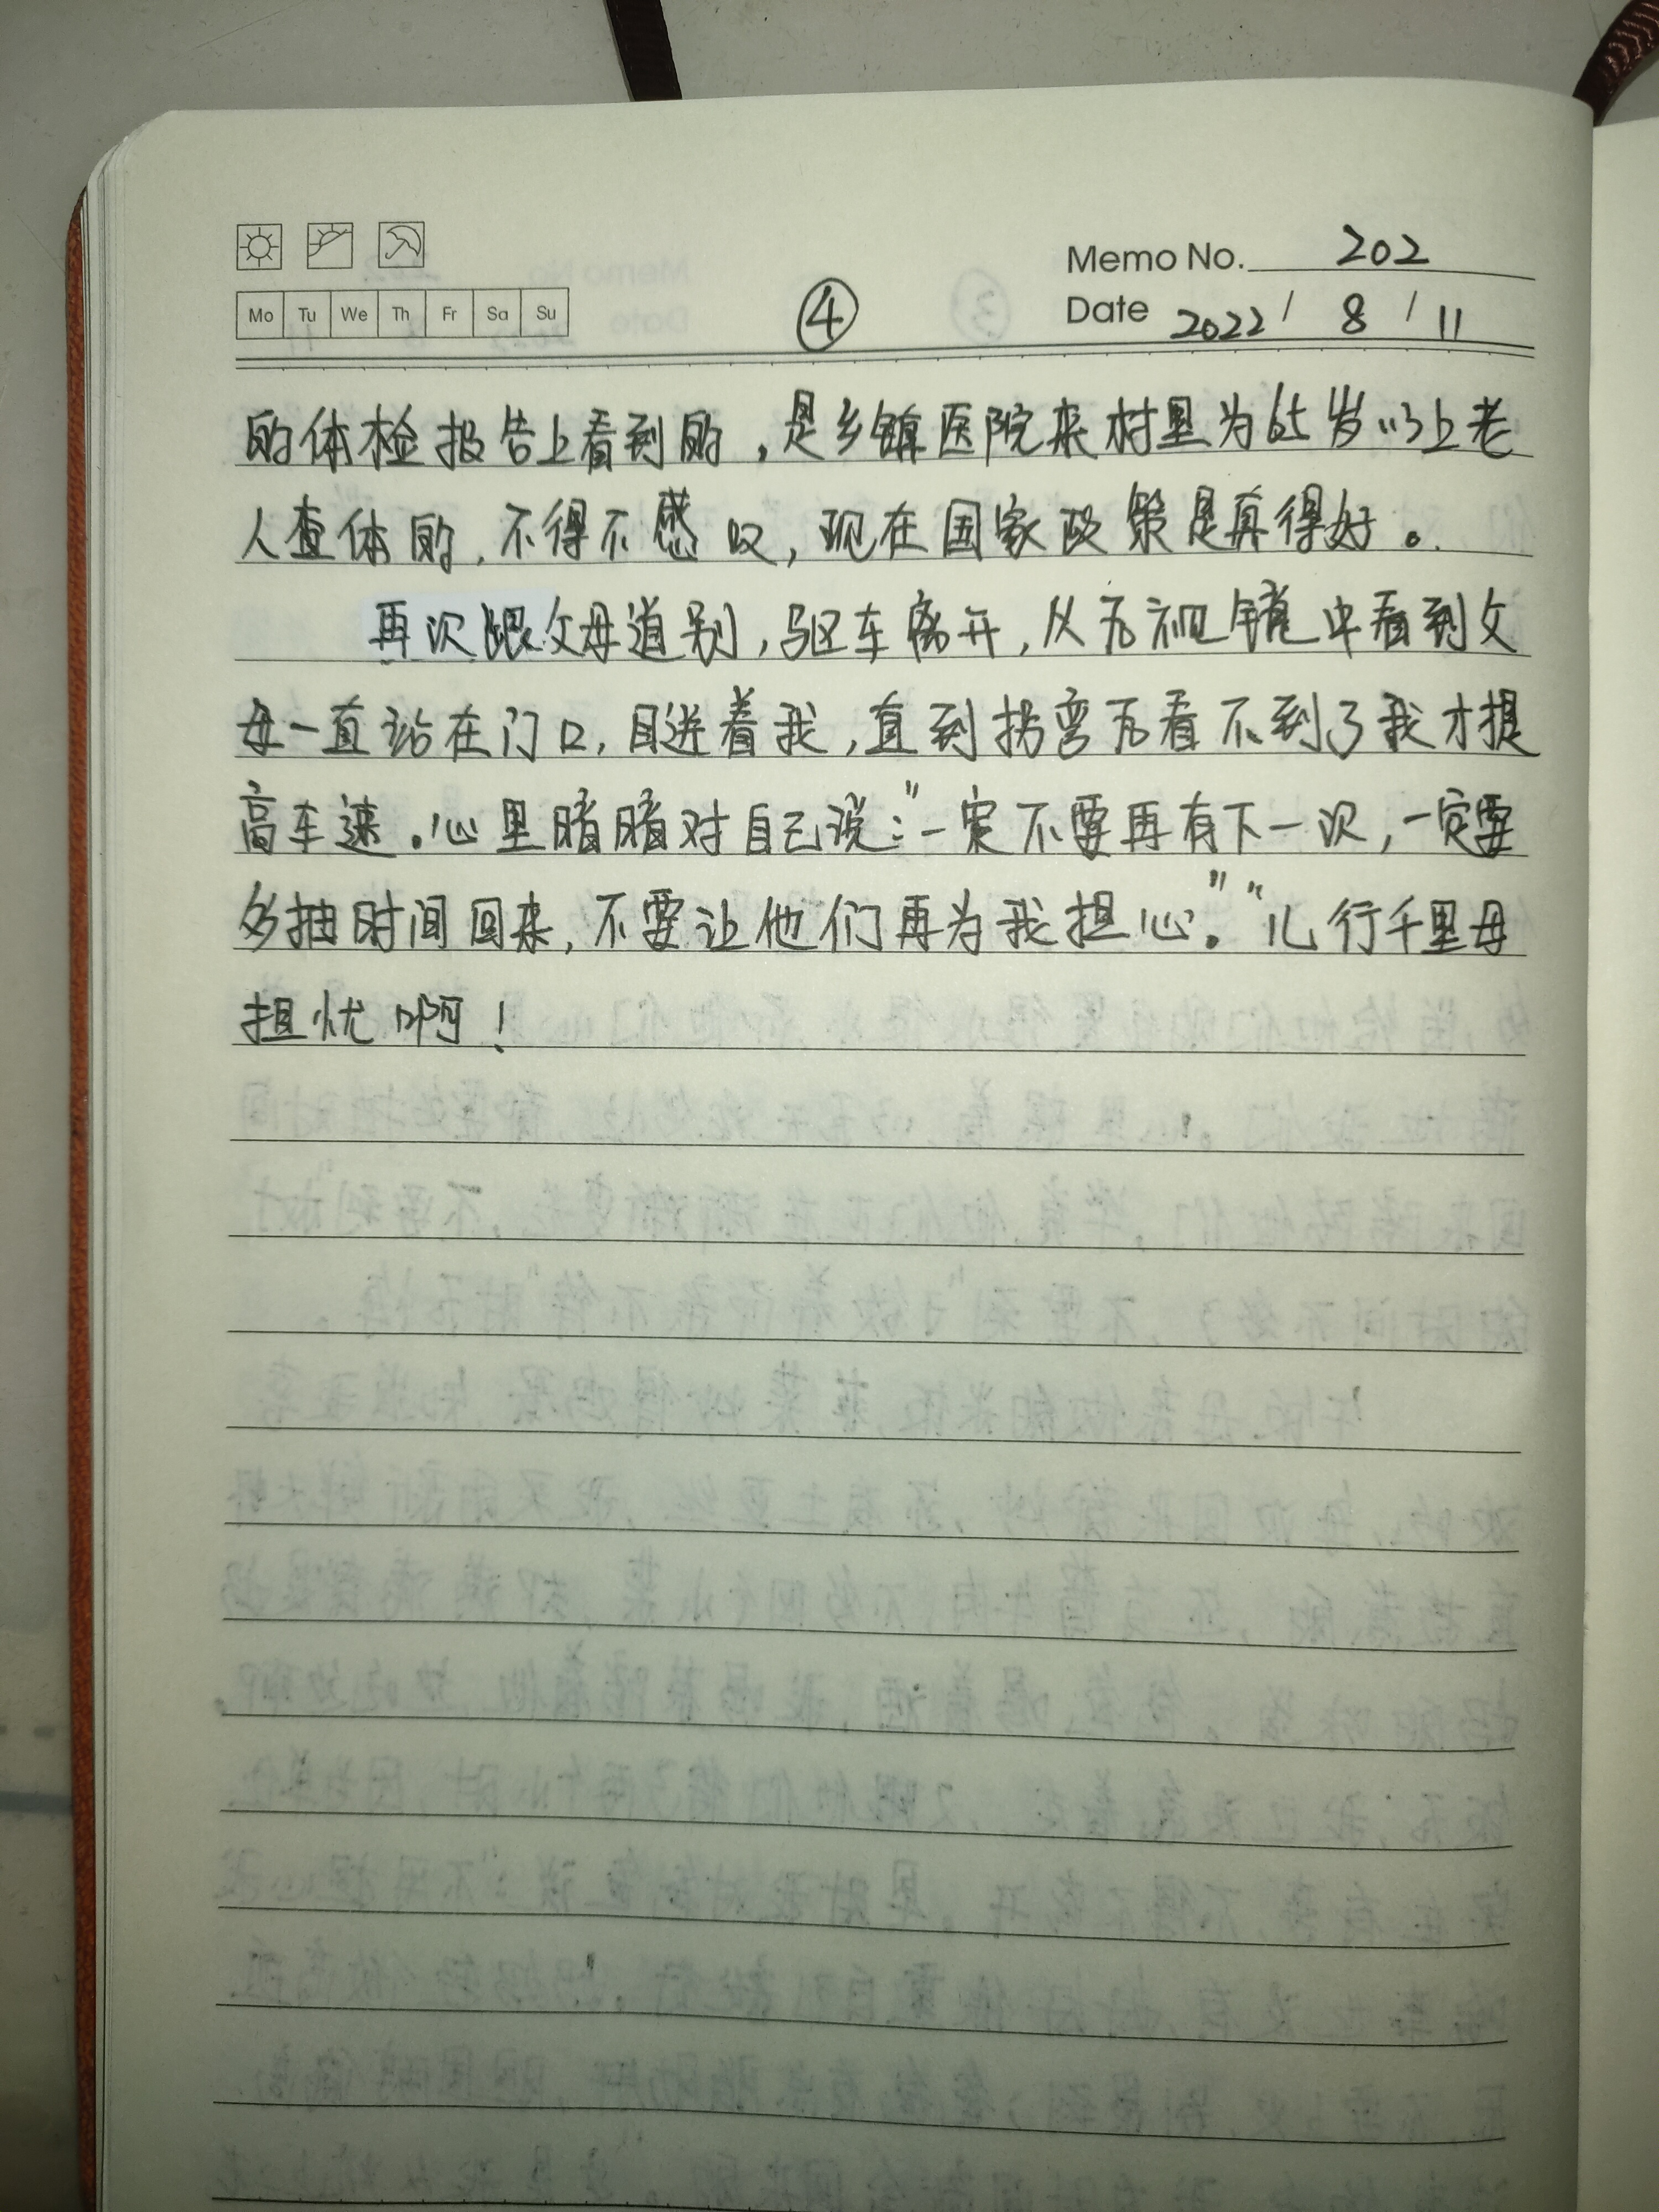 Memo No. 202
Mo Tu We Th Fr Sa Su
④
Date 2022 / 8 / 11
的体检报告上看到的,是乡镇医院来村里为65岁以上老
人查体的,不得不感叹,现在国家政策是真得好。
再次跟父母道别,驱车离开,从后视镜中看到父
母一直站在门口,目送着我,直到拐弯后看不到了我才提
高车速。心里暗暗对自己说:“一定不要再有下一次,一定要
多抽时间回来,不要让他们再为我担心。”“儿行千里母
担忧啊!